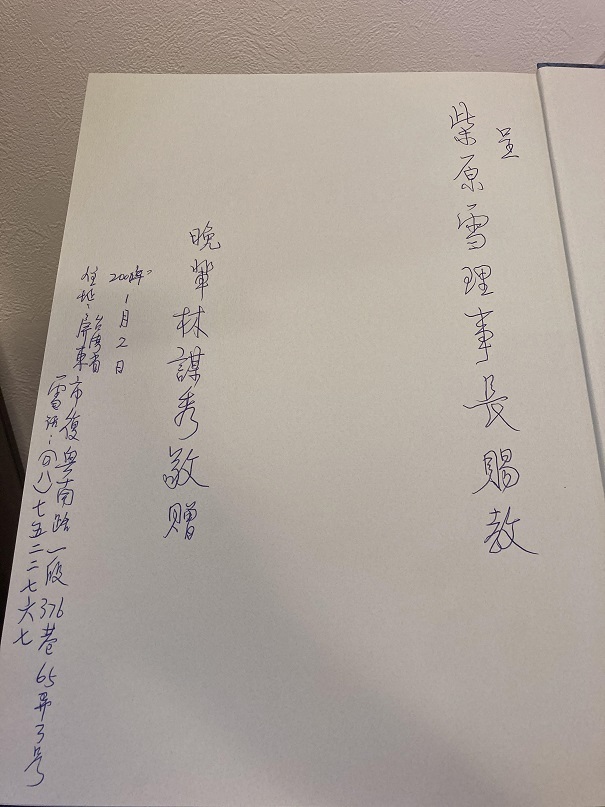 呈
柴原雪理事長賜教
晚輩林謀秀敬贈
1月2日
住址：台湾省屏東市復興南路一段376巷65弄3号
電話：(〇八)七五二二七六七